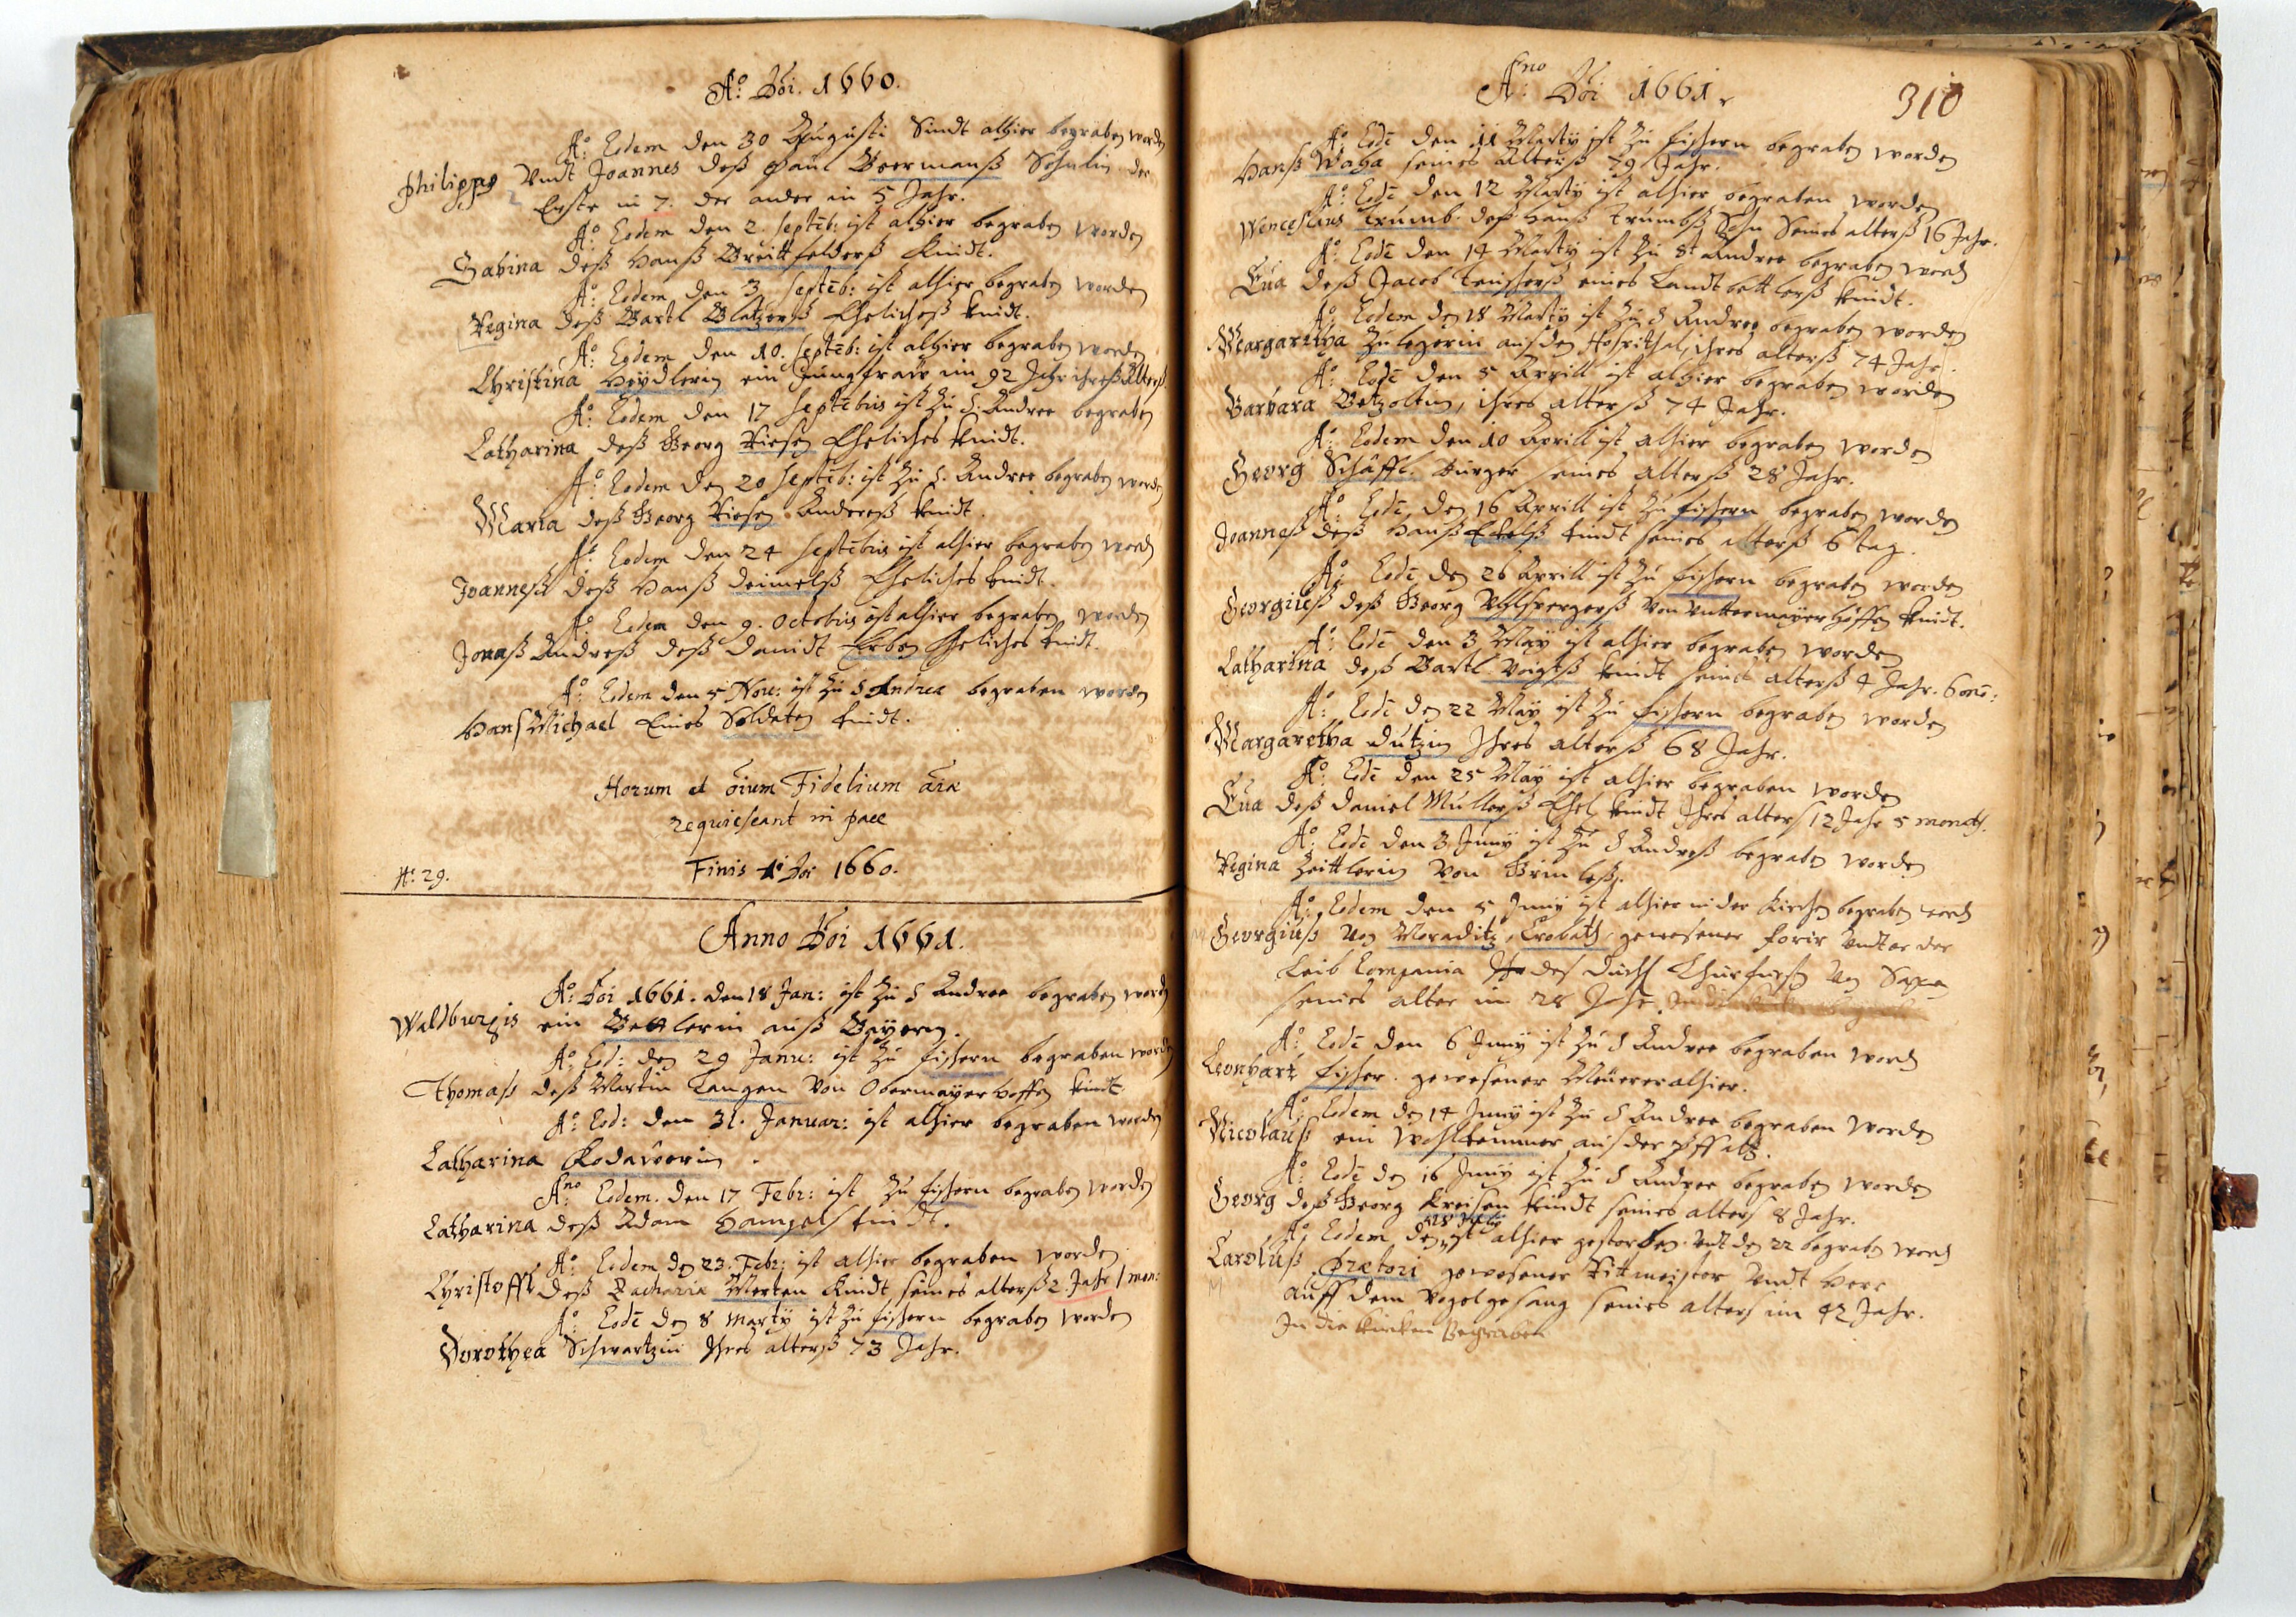 Aº: Dōi. 1660.
Aº: Eodem den 30 Augusti Sindt alhier begraben worden
Philippg Undt Joannes deß Paul Beermanß Söhnlin der
Erste in 7. der ander in 5 Jahr.
Aº: Eodem den 2. Septēb: ist alhier begraben worden
Sabina deß Hanß Breittfelderß Kindt.
Aº: Eodem den 3 Septēb: ist alhier begraben worden
Regina deß Bartl Ehelicheß kindt.
Aº: Eodem den 10. Septēb: ist alhier begraben worden
Christina Heydlerin ein Jungfraw im 92 Jahr ihreß Alterß
Aº: Eodem den 17 Septēbris ist zu S. Andree begraben
Catharina deß Georg Riesen Eheliches kindt.
Aº: Eodem den 20 Septēb: ist zu S. Andree begraben worden
Maria deß Georg Riesen Andereß kindt.
Aº: Eodem den 24 Septēbris ist alhier begraben word
Joanneß deß Hanß Deimelß Eheliches kindt.
Aº: Eodem den 9. Octobris ist alhier begraben worden
Jonaß Andreß deß Davidt Erben Eheliches kindt.
Aº: Eodem den 5 Nov: ist zu S Andrea begraben worden
Hanß Michael Eines Soldaten kindt.
Horum et ōium Fidelium āiæ
requiescant in pace
Finis Aº Dōi 1660.
Nº: 29.
Anno Dōi 1661.
Aº: Dōi 1661. den 18 Jan: ist zu S Andree begraben worden
Waldburgis ein Bettlerin auß Bayern.
Aº: Eod: den 29 Janu: ist zu fischern begraben worden
Thomaß deß Martin Langen Von Obermayerhoffen kindt.
Aº: Eod: den 31. Januar: ist alhier begraben worden
Catharina Rodaweerin.
Ano: Eodem. den 17 Febr: ist zu fischern begraben worden
Catharina deß Adam Hampels kindt.
Aº: Eodem den 23. Febr: ist alhier begraben worden
Christoffl deß Zachariæ Merten Kindt seines alterß 2. Jahr 1 mon:
Aº: Eodē den 8 Marty ist zu fischern begraben worden
Dorothea Schwartzin Ihres alterß 73 Jahr.
Ano: Dōi 1661.
310
Aº: Eodē den 11 Marty ist zu fischern begraben worden
Hanß Waha seines alterß 79 Jahr.
Aº: Eodē den 12 Marty ist alhier begraben worden
Wenceslaus Trumb. deß Hanß Trumbß Sohn Seines alterß 16 Jahr.
Aº: Eodē den 14 Marty ist zu St Andree begraben word
Eua deß Jacob eines Landtbettlerß kindt.
Aº: Eodem den 18 Marty ist zu S Andree begraben worden
Margaretha Zulegerin auß den Hospithal, ihres alterß 74 Jahr.
Aº: Eodē den 5 Aprill ist alhier begraben worden
Barbara Betzoltin, ihres alterß 74 Jahr.
Aº: Eodem den 10 Aprill ist alhier begraben worden
Georg Schäffl. Burger seines alterß 28 Jahr.
Aº: Eodē. den 16 Aprill ist zu fischern begraben worden
Joanneß deß Hanß Eckelß kindt seines alterß 6 tag.
Aº: Eodē den 26 Aprill ist zu fischern begraben worden
Georgiueß deß Georg Von Untermayerhöffen kindt.
Aº: Eodē den 3 May ist alhier begraben worden
Catharina deß Bartl Voigtß kindt seines alterß 4 Jahr. 6 mō:
Aº: Eodē den 22 May ist zu fischern begraben worden
Margaretha Dutzin Ihres alterß 68 Jahr.
Aº: Eodē den 25 May ist alhier begraben worden
Eua deß Daniel Mullerß Ehel kindt Ihres alters 12 Jahr 5 monath.
Aº: Eodē den 3 Juny ist zu S Andreß begraben worden
Regina Zeittlerin Von Grünleß.
Aº: Eodem den 5 Juny ist alhier in der Kirchen begraben word
Georgiuß Von Moraditz, Crobath, gewesener forir Undter der
Leib Compania des Churfurst Von Saxen
seines alter im 28 Jahr.
Aº: Eodē den 6 Juny ist zu S Andree begraben word
Leonhart fischer. gewesener Meürer alhier.
Aº: Eodem den 14 Juny ist zu S Andree begraben worden
Nicolauß ein auß der Pfaltz.
Aº: Eodē den 16 Juny ist zu S Andree begraben worden
Georg deß Georg Kreisen kindt seines alters 8 Jahr.
Aº: Eodem den 18 July ist alhier gestorben. Undt den 22 begraben word
Caroluß Prætori gewesener Rittmeister Undt Herr
auff dem Vogelgesang seines alters im 42 Jahr.
In die kirchen Begraben